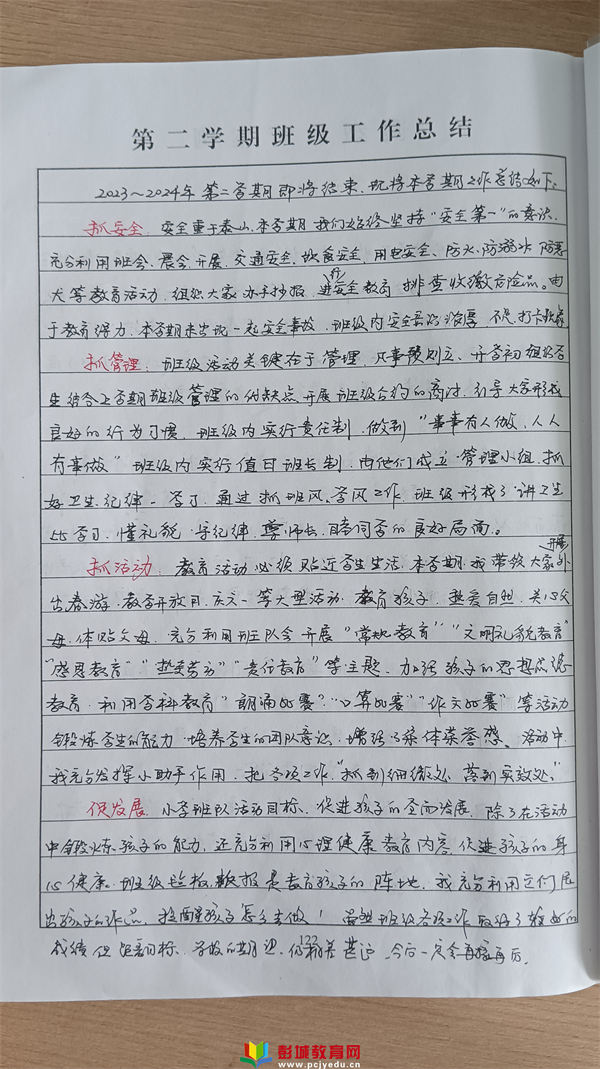 第二学期班级工作总结
2023~2024年第二学期即将结束,现将本学期工作总结如下。
抓安全:安全重于泰山,本学期我们始终坚持“安全第一”的意识,
充分利用班会、晨会、开展交通安全、饮食安全、用电安全、防火、防溺水、防恶
犬等教育活动,组织大家办手抄报,进行安全教育,排查收缴危险品。由
于教育得力,本学期未出现一起安全事故,班级内安全意识浓厚,
抓管理:班级活动关键在于管理,凡事预则立、开学初组织学
生结合上学期班级管理的优缺点开展班级公约的商讨,引导大家形成
良好的行为习惯,班级内实行责任制,做到“事事有人做,人人
有事做”班级内实行值日班长制,由他们成立管理小组,抓
好卫生、纪律、学习,通过抓班风、学风工作,班级形成了讲卫生
比学习、懂礼貌、守纪律、尊师长、睦同学的良好局面。
抓活动:教育活动必须贴近学生生活,本学期,我带领大家开展
出春游、教学开放日、庆六一等大型活动,教育孩子,热爱自然,关心父
母,体贴父母,充分利用班队会开展“常规教育”“文明礼貌教育”
“感恩教育”“热爱劳动”“责任教育”等主题,加强孩子的思想品德
教育,利用学科教育“朗诵比赛”“口算比赛”“作文比赛”等活动
锻炼学生的能力,培养学生的团队意识,增强了集体荣誉感。活动中,
我充分发挥小助手作用,把各项工作“抓到细微处,落到实效处。”
促发展:小学班队活动目标、促进孩子的全面发展,除了在活动
中锻炼孩子的能力,还充分利用心理健康教育内容,促进孩子的身
心健康。班级墙报、板报是教育孩子的阵地,我充分利用它们展
出孩子的作品,提醒孩子怎么去做!虽然班级各项工作取得了较好的
成绩,但距离目标、学校的期望,仍相差甚远,今后一定会再接再厉。
122
彭城教育网
www.pcjyedu.cn